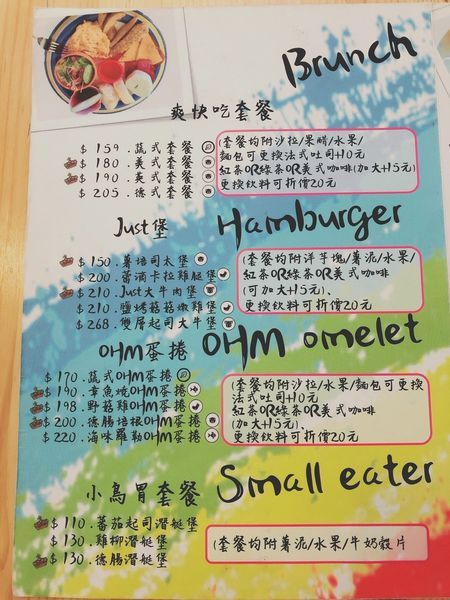 Brunch
爽快吃套餐
$159.蔬式套餐
$180.美式套餐
$190.英式套餐
$205.德式套餐
(套餐均附沙拉/果醋/水果/
麵包可更換法式吐司+10元
紅茶OR綠茶OR美式咖啡(加大+15元)
更換飲料可折價20元
Just堡 Hamburger
$150.薯培司太堡
$200.醬滴卡拉雞腿堡
$210.Just大牛肉堡
$210.鹽烤菇菇燉雞堡
$268.雙層起司大牛堡
(套餐均附洋芋塊/薯泥/水果/
紅茶OR綠茶OR美式咖啡
(可加大+15元)、
更換飲料可折價20元
OHM蛋捲 OHM omelet
$170.蔬式OHM蛋捲
$190.章魚燒OHM蛋捲
$198.野菇雞OHM蛋捲
$200.德腸培根OHM蛋捲
$220.海味羅勒OHM蛋捲
(套餐均附沙拉/水果/麵包可更換
法式吐司+10元
紅茶OR綠茶OR美式咖啡
(加大+15元)、
更換飲料可折價20元
小鳥胃套餐 Small eater
$110.蕃茄起司潛艇堡
$130.雞柳潛艇堡
$130.德腸潛艇堡
(套餐均附薯泥/水果/牛奶穀片